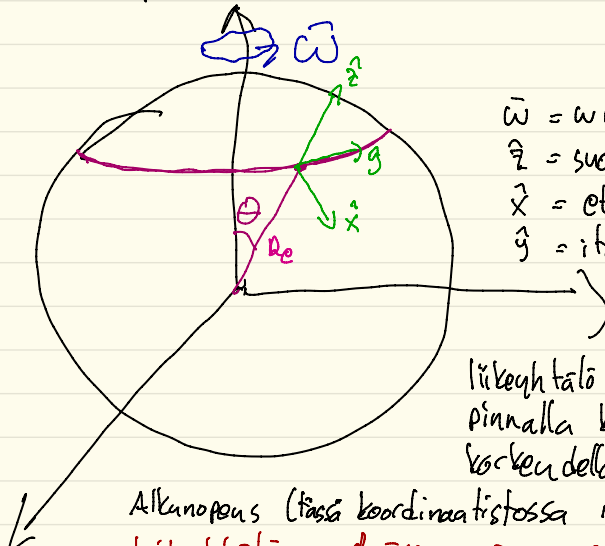 ω̄
ẑ
ŷ
x̂
θ
Re
ω̄ = ω
ẑ = suo
x̂ = et
ŷ = it
liikeyhtälö
pinnalla k
korkeudella
Alkunopeus (tässä koordinaatistossa